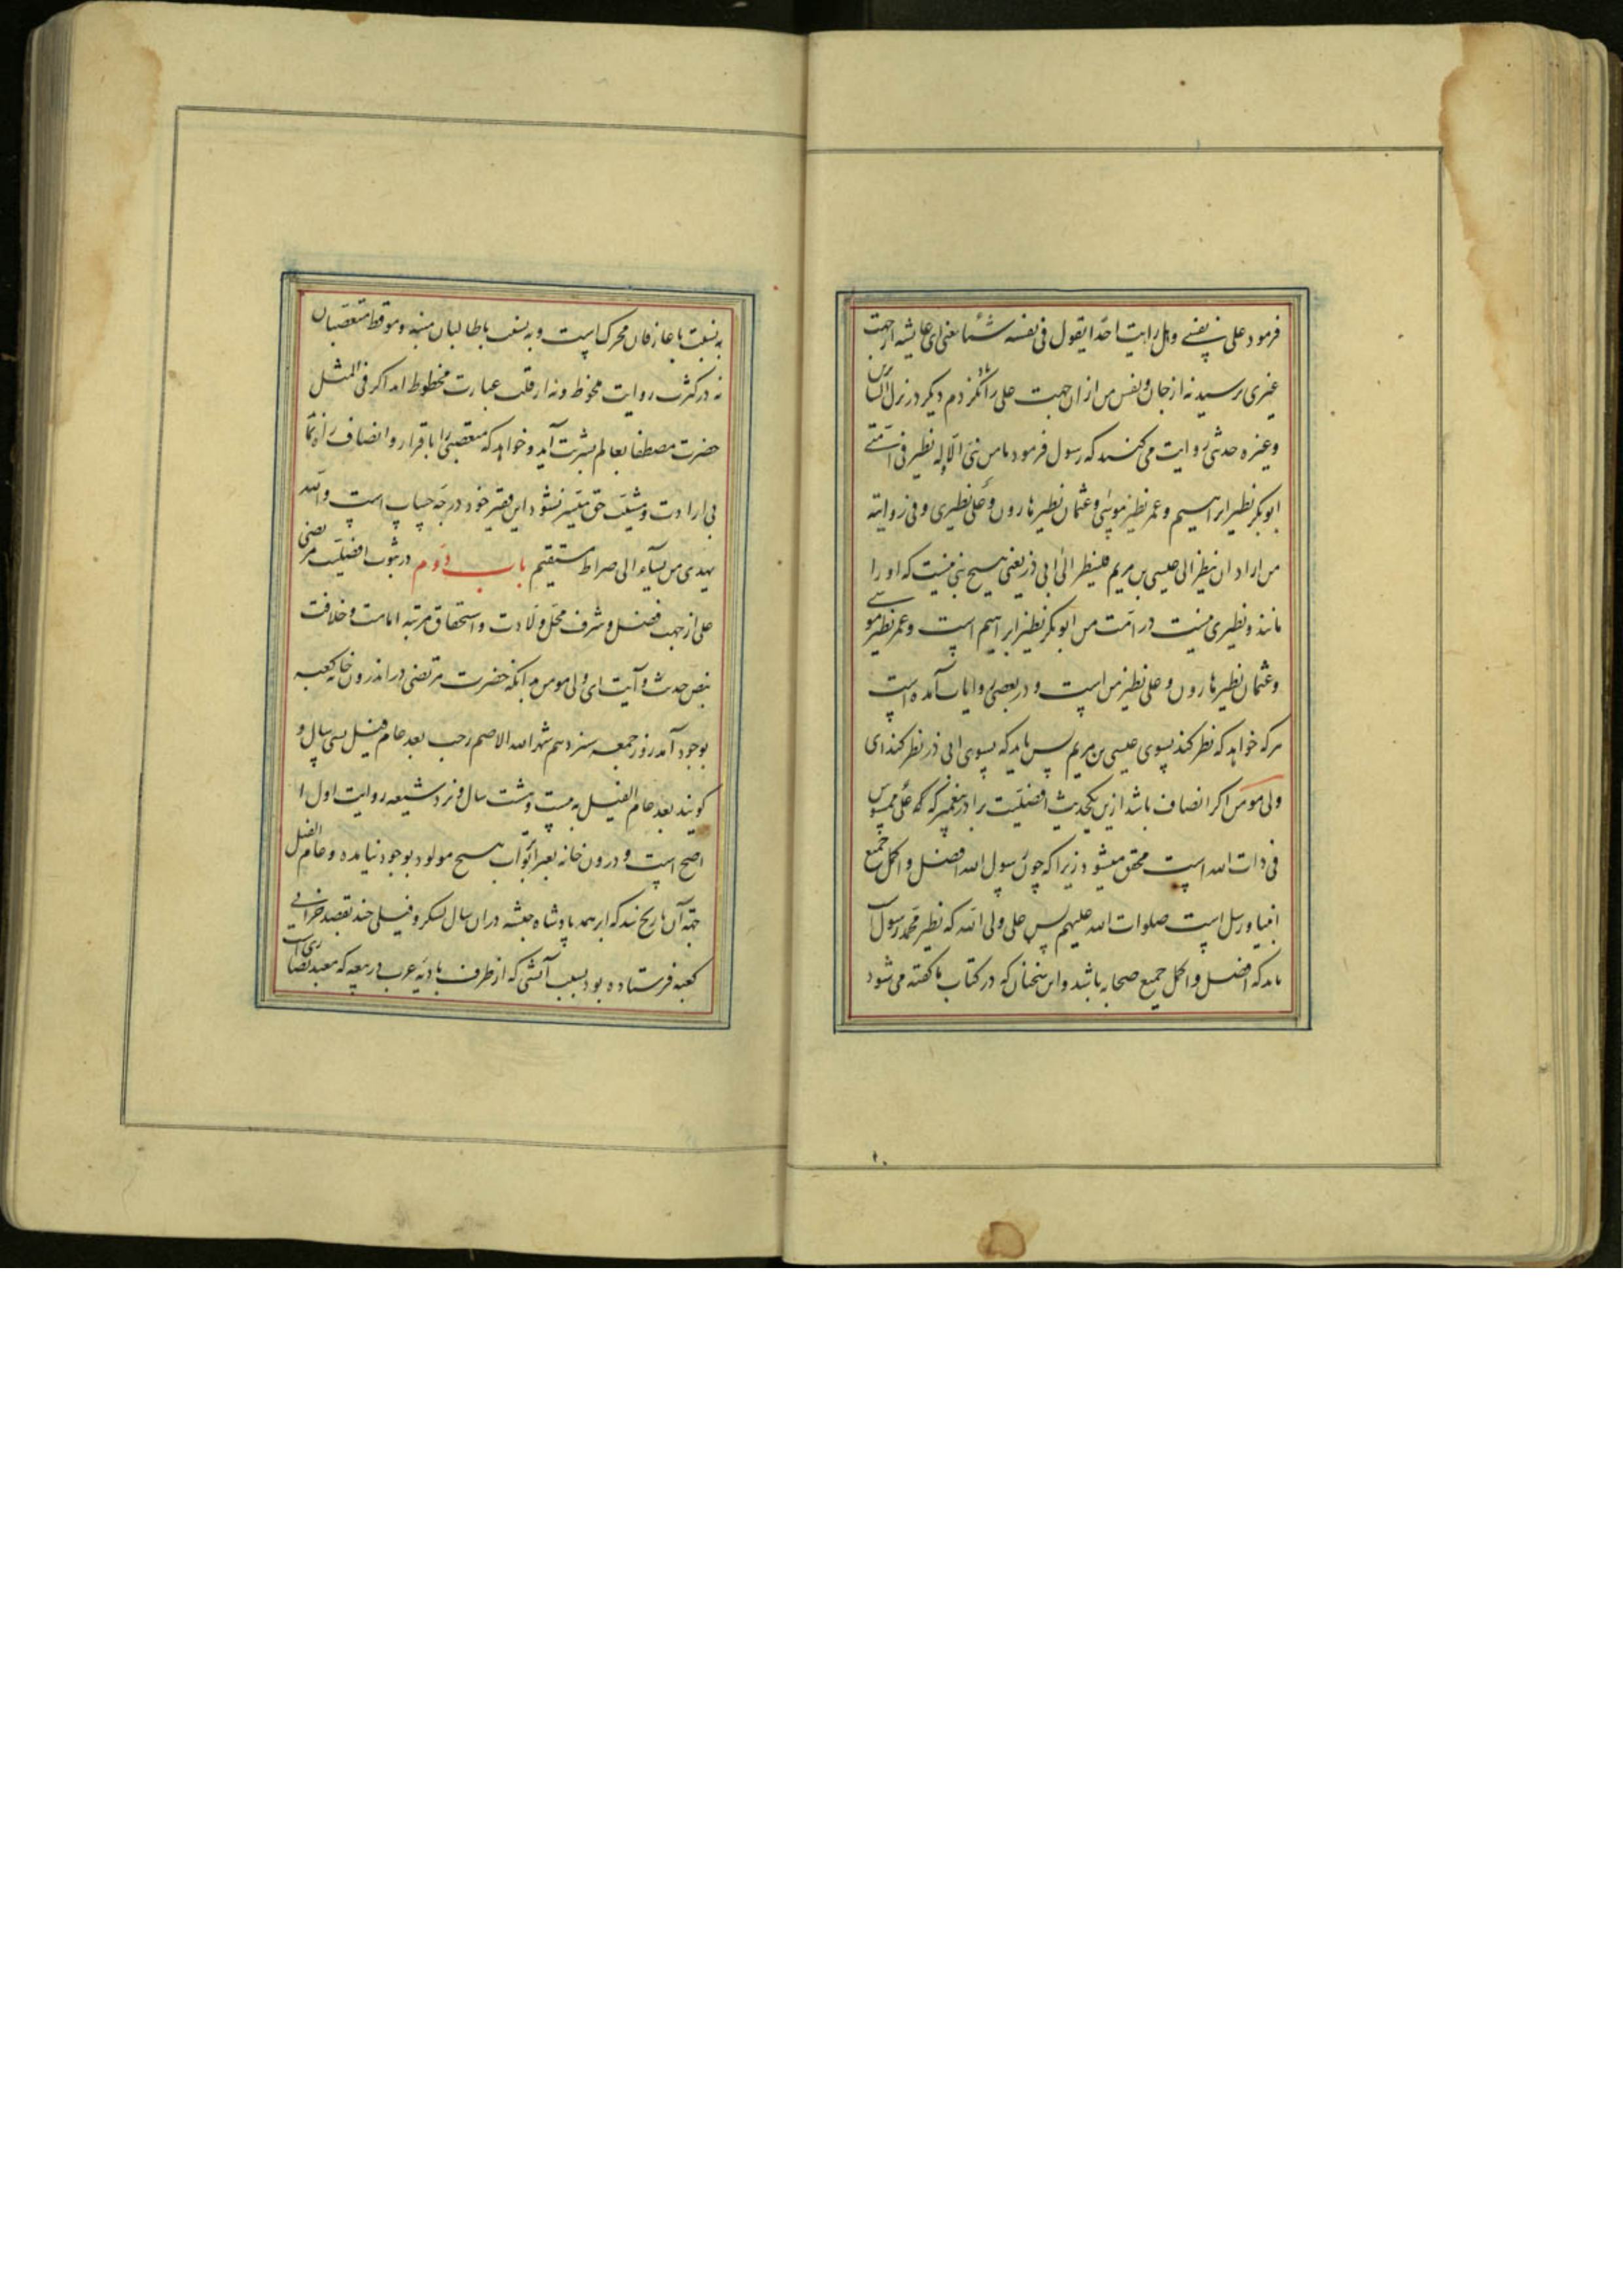 فرمود علی نفسے وهل رایت احدا یقول فی نفسه شئا یعنی ای عایشه از جهت
غیری پرسید نه از جان و نفس من ازان جهت علی را یاد نکردم دیگر در نزل السایرین
وغیره حدیثی روایت می کنند که رسول فرمود مامن نبی الا وله نظیر فی امتے
ابوبکر نظیر ابراهیم وعمر نظیر موسی وعثمان نظیر هارون وعلی نظیری وفی روایته
من اراد ان ینظر الی عیسی بن مریم فلینظر الی ابی ذر یعنی هیچ نبی نیست که او را
مانند و نظیری نیست در امت من ابوبکر نظیر ابراهیم است وعمر نظیر موسے
وعثمان نظیر هارون وعلی نظیر من است ودر بعضی روایات آمده است
هرکه خواهد که نظر کند بسوی عیسی بن مریم پس باید که بسوی ابی ذر نظر کند ای
ولی مومن اگر انصاف باشد ازین یکحدیث افضلیت برادر پیغمبر که علی ممسوس
فی ذات الله است محقق میشود زیرا که چون رسول الله افضل واکمل جمیع
انبیا ورسل است صلوات الله علیهم پس علی ولی الله که نظیر محمد رسول الله
باید که افضل واکمل جمیع صحابه باشد واین سخنان که در کتاب ما گفته می شود
به نسبت با عارفان محرک است و به نسبت با طالبان منبه و موقظ متعصبان
نه در کثرت روایت محفوظ ونه از قلت عبارت محظوظ اند اگر فی المثل
حضرت مصطفا بعالم بشریت آید وخواهد که متعصبی را باقرار وانصاف راه نماید
بی ارادت ومشیت حق میسر نشود این فقیر خود درچه حساب است والله
یهدی من یشاء الی صراط مستقیم باب دوم در ثبوت افضلیت مرتضی
علی از جهت فضل وشرف محل ولادت واستحقاق مرتبه امامت وخلافت
بنص حدیث وآیت ای ولی مومن بدانکه حضرت مرتضی در اندرون خانه کعبه
بوجود آمد روز جمعه سیزدهم شهر الله الاصم رجب بعد عام فیل بسی سال و
گویند بعد عام الفیل به بیست وهشت سال ونزد شیعه روایت اول
اصح است ودرون خانه بغیر ابوتراب هیچ مولود بوجود نیامده وعام الفیل
جهة آن تاریخ شد که ابرهه پادشاه حبشه دران سال لشکر وفیلی چند بقصد خرابی
کعبه فرستاده بود بسبب آتشی که از طرف بادیه عرب در بیعه که معبد نصاری است